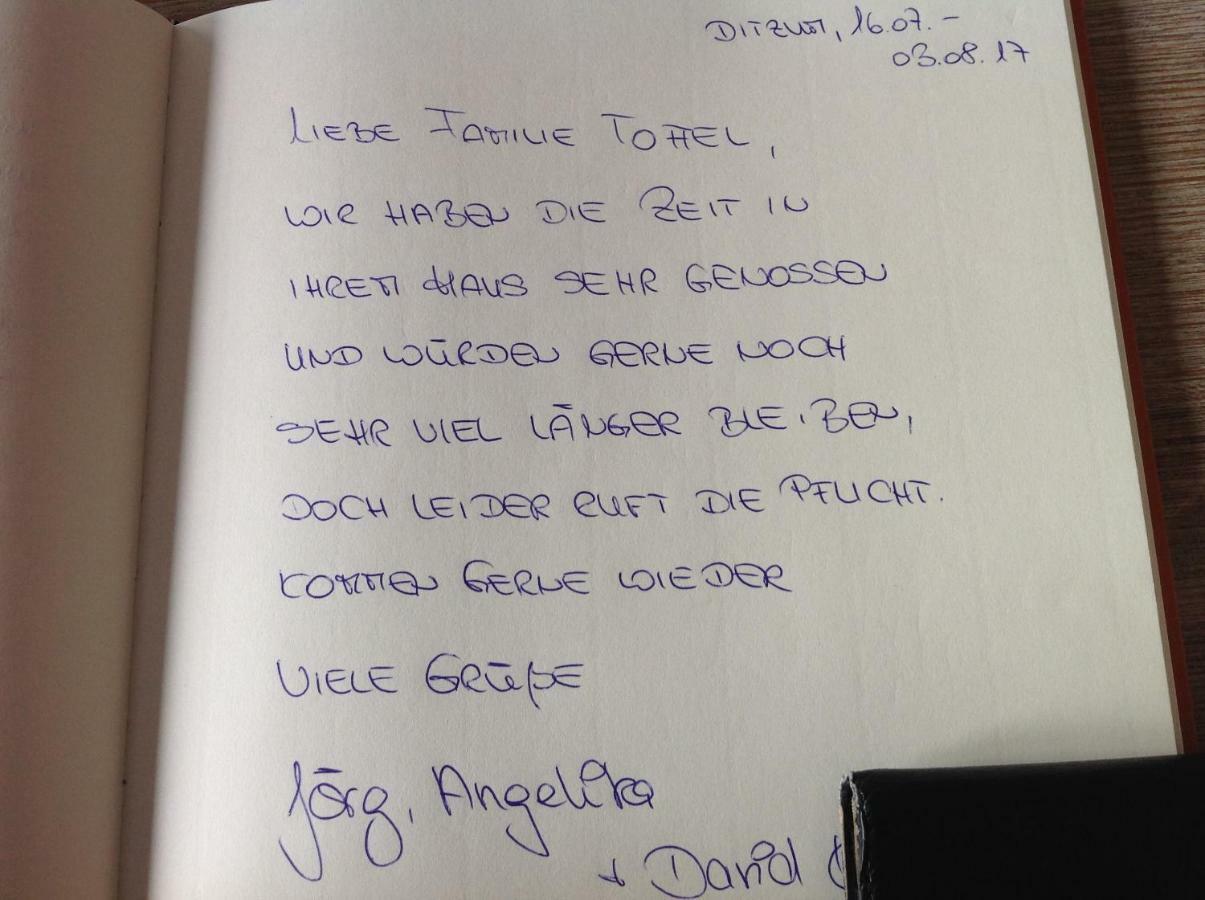 DITZUM, 16.07. –
03.08.17
LIEBE FAMILIE TOFFEL,
WIR HABEN DIE ZEIT IN
IHREM HAUS SEHR GENOSSEN
UND WÜRDEN GERNE NOCH
SEHR VIEL LÄNGER BLEIBEN,
DOCH LEIDER RUFT DIE PFLICHT.
KOMMEN GERNE WIEDER
VIELE GRÜßE
Jörg, Angelika
+ David